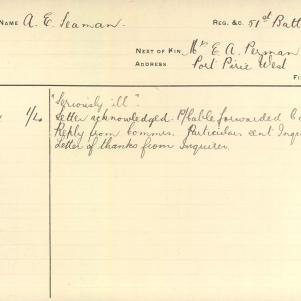 NAME A. E. Seaman REG. &C. 51st Batt
NEXT OF KIN Mrs E. A. Perman
ADDRESS Port Pirie West
"Seriously ill".
1/20 Letter acknowledged. P/Cable forwarded
Reply from Commrs. Particulars sent Inqui
Letter of thanks from Inquirer.